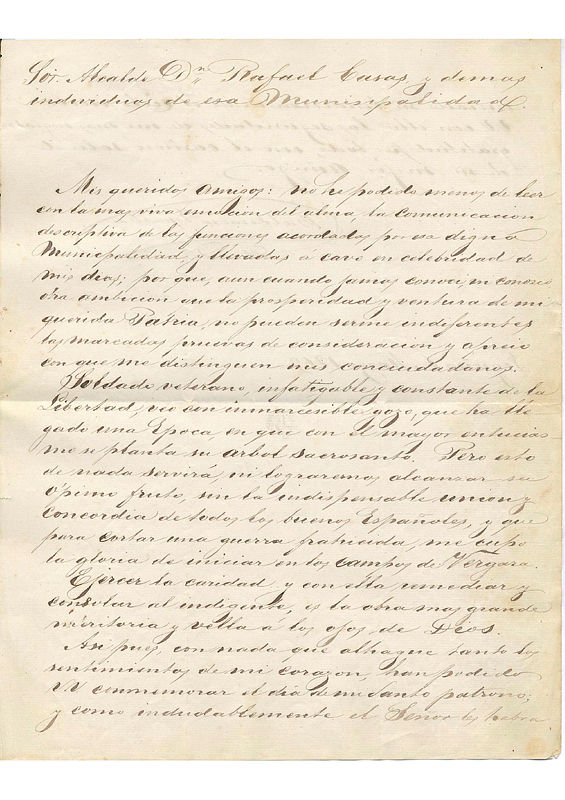 Sör. Alcalde Dn. Rafael Casas, y demas
individuos de esa Municipalidad.
Mis queridos amigos: no he podido menos de leer
con la mas viva emocion del alma, la Comunicacion
descriptiva de las funciones acordadas por esa digna
Municipalidad, y llevadas á cavo en celebridad de
mis dias; por que, aun cuando jamas conoci, ni conozco
otra ambicion que la prosperidad y ventura de mi
querida Patria, no pueden serme indiferentes
las marcadas pruevas de consideracion y aprecio
con que me distinguen mis conciudadanos.
Soldado veterano, infatigable y constante de la
Libertad, veo con inmarcesible gozo, que ha lle
gado una Epoca en que con el mayor entucias
mo se planta su arbol sacrosanto. Pero esto
de nada servirá, ni lograremos alcanzar su
ópimo fruto, sin la indispensable union y
Concordia de todos los buenos Españoles, y que
para cortar una guerra fratricida, me cupo
la gloria de iniciar en los campos de Vergara.
Ejercer la caridad, y con ella remediar y
consolar al indigente, es la obra mas grande
meritoria y vella á los ojos de Dios.
Asi pues, con nada que alhague tanto los
sentimientos de mi corazon, han podido
VV conmemorar el dia de mi Santo patrono;
y como indudablemente el Señor les habra